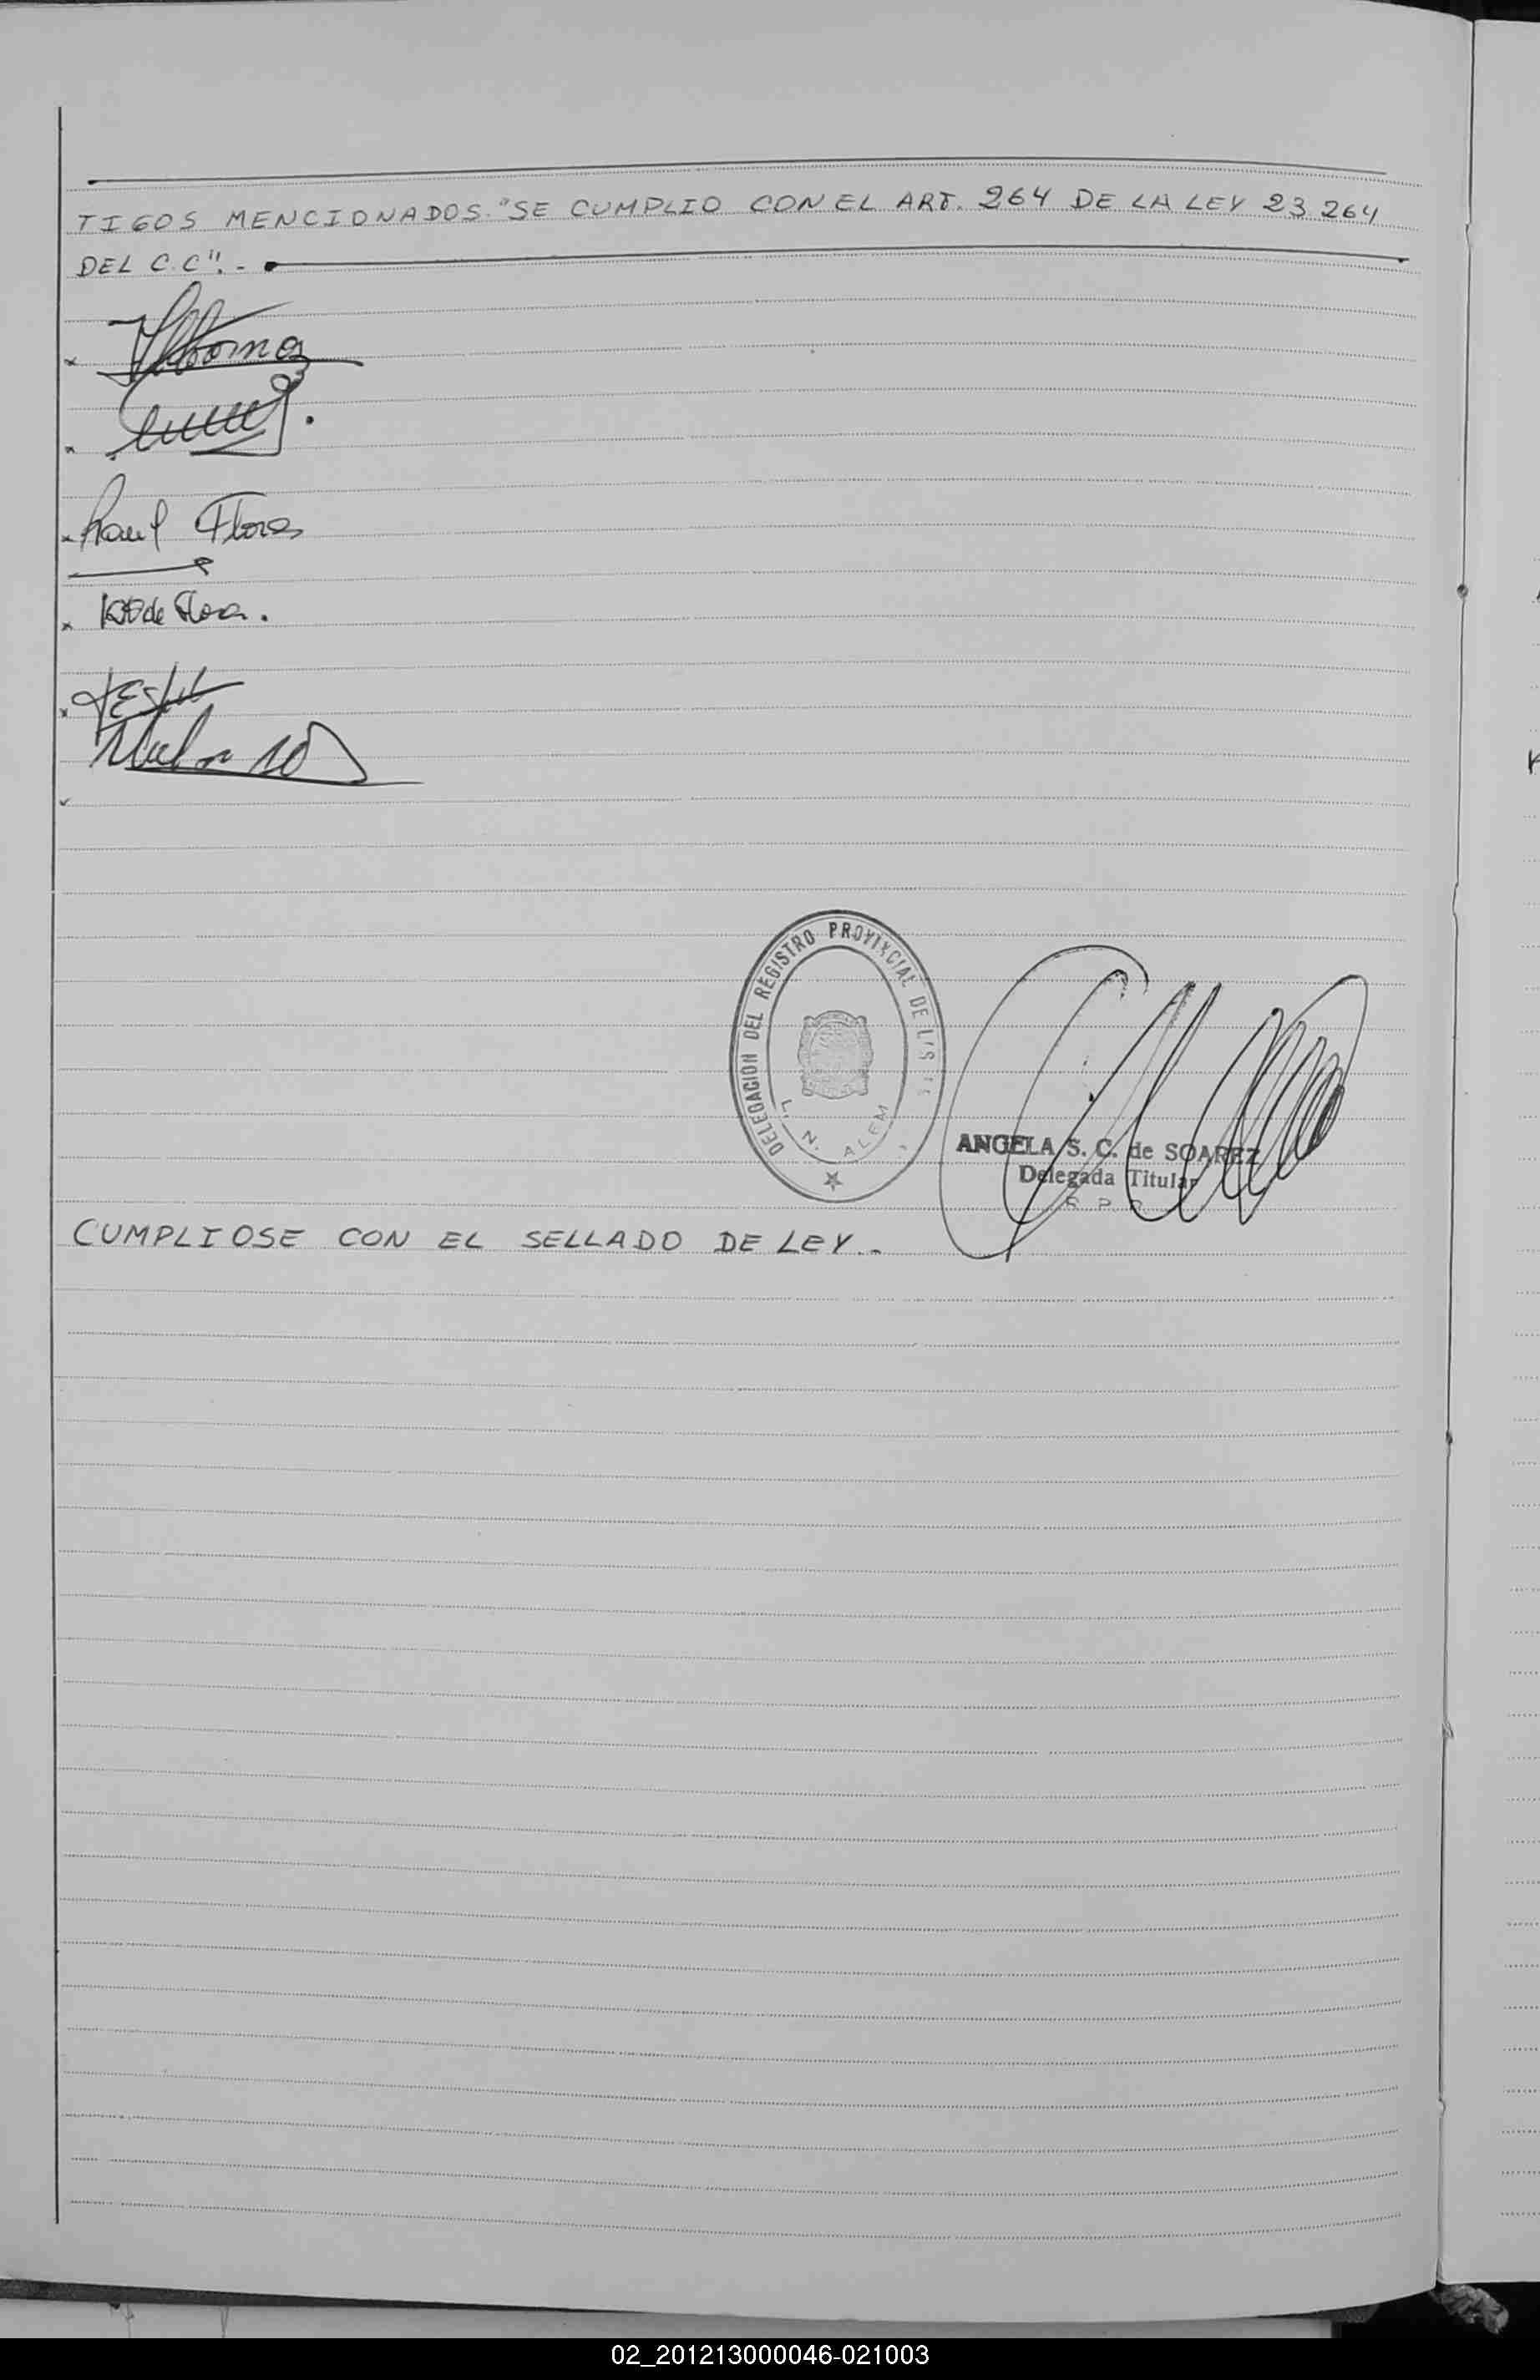 TIGOS MENCIONADOS. "SE CUMPLIO CON EL ART. 264 DE LA LEY 23 264
DEL C.C". -
Raul Flores
de Flores.
DELEGACION DEL REGISTRO PROVINCIAL DE
L. N. ALEM
ANGELA S. C. de SOAREZ
Delegada Titular
R P
CUMPLIOSE CON EL SELLADO DE LEY. -
02_201213000046-021003